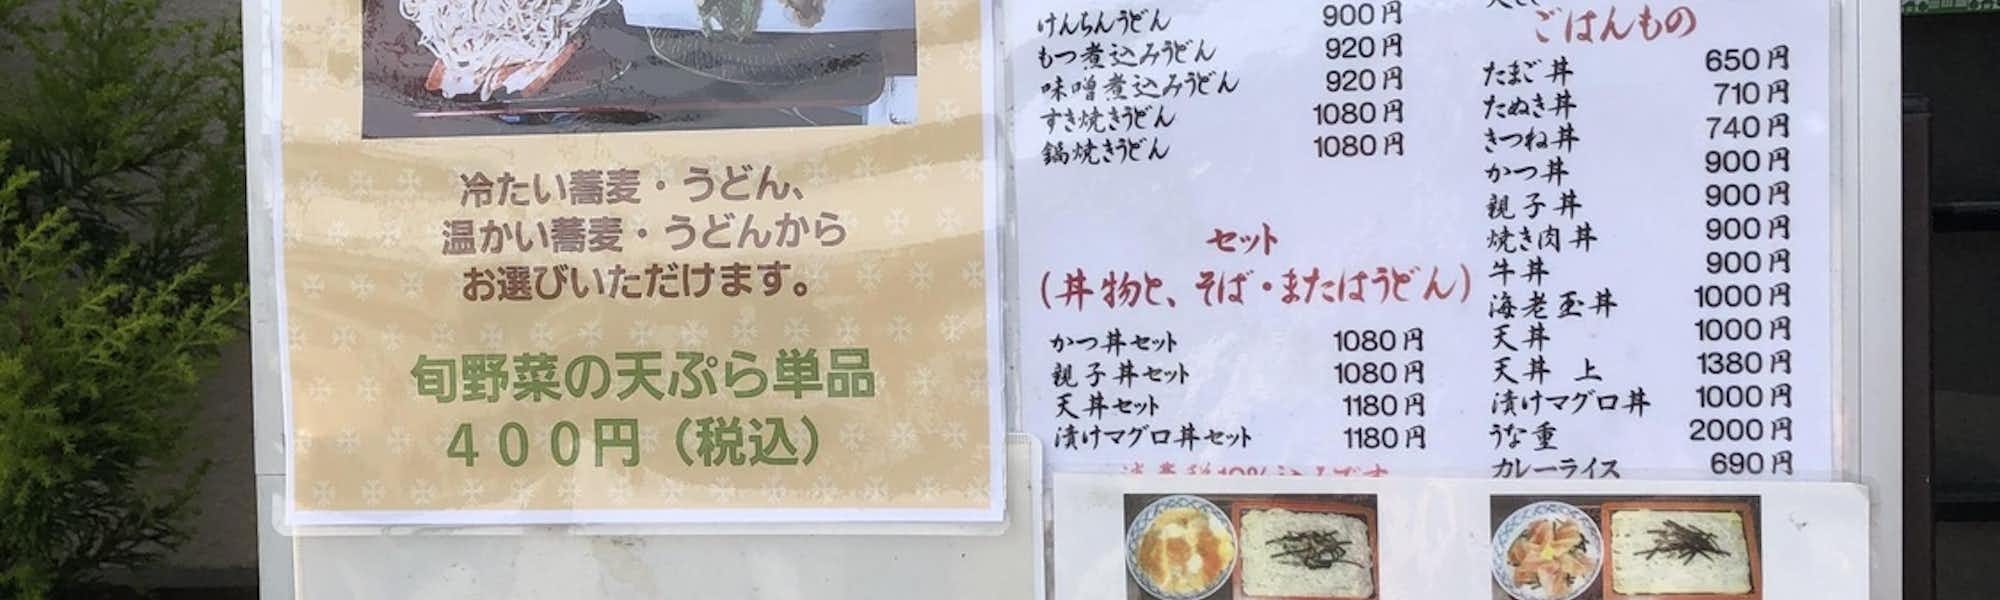 冷たい蕎麦・うどん、
温かい蕎麦・うどんから
お選びいただけます。
旬野菜の天ぷら単品
400円（税込）
けんちんうどん 900円
もつ煮込みうどん 920円
味噌煮込みうどん 920円
すき焼きうどん 1080円
鍋焼きうどん 1080円
セット
(丼物と、そば・またはうどん)
かつ丼セット 1080円
親子丼セット 1080円
天丼セット 1180円
漬けマグロ丼セット 1180円
消費税10%込みです
ごはんもの
たまご丼 650円
たぬき丼 710円
きつね丼 740円
かつ丼 900円
親子丼 900円
焼き肉丼 900円
牛丼 900円
海老玉丼 1000円
天丼 1000円
天丼 上 1380円
漬けマグロ丼 1000円
うな重 2000円
カレーライス 690円